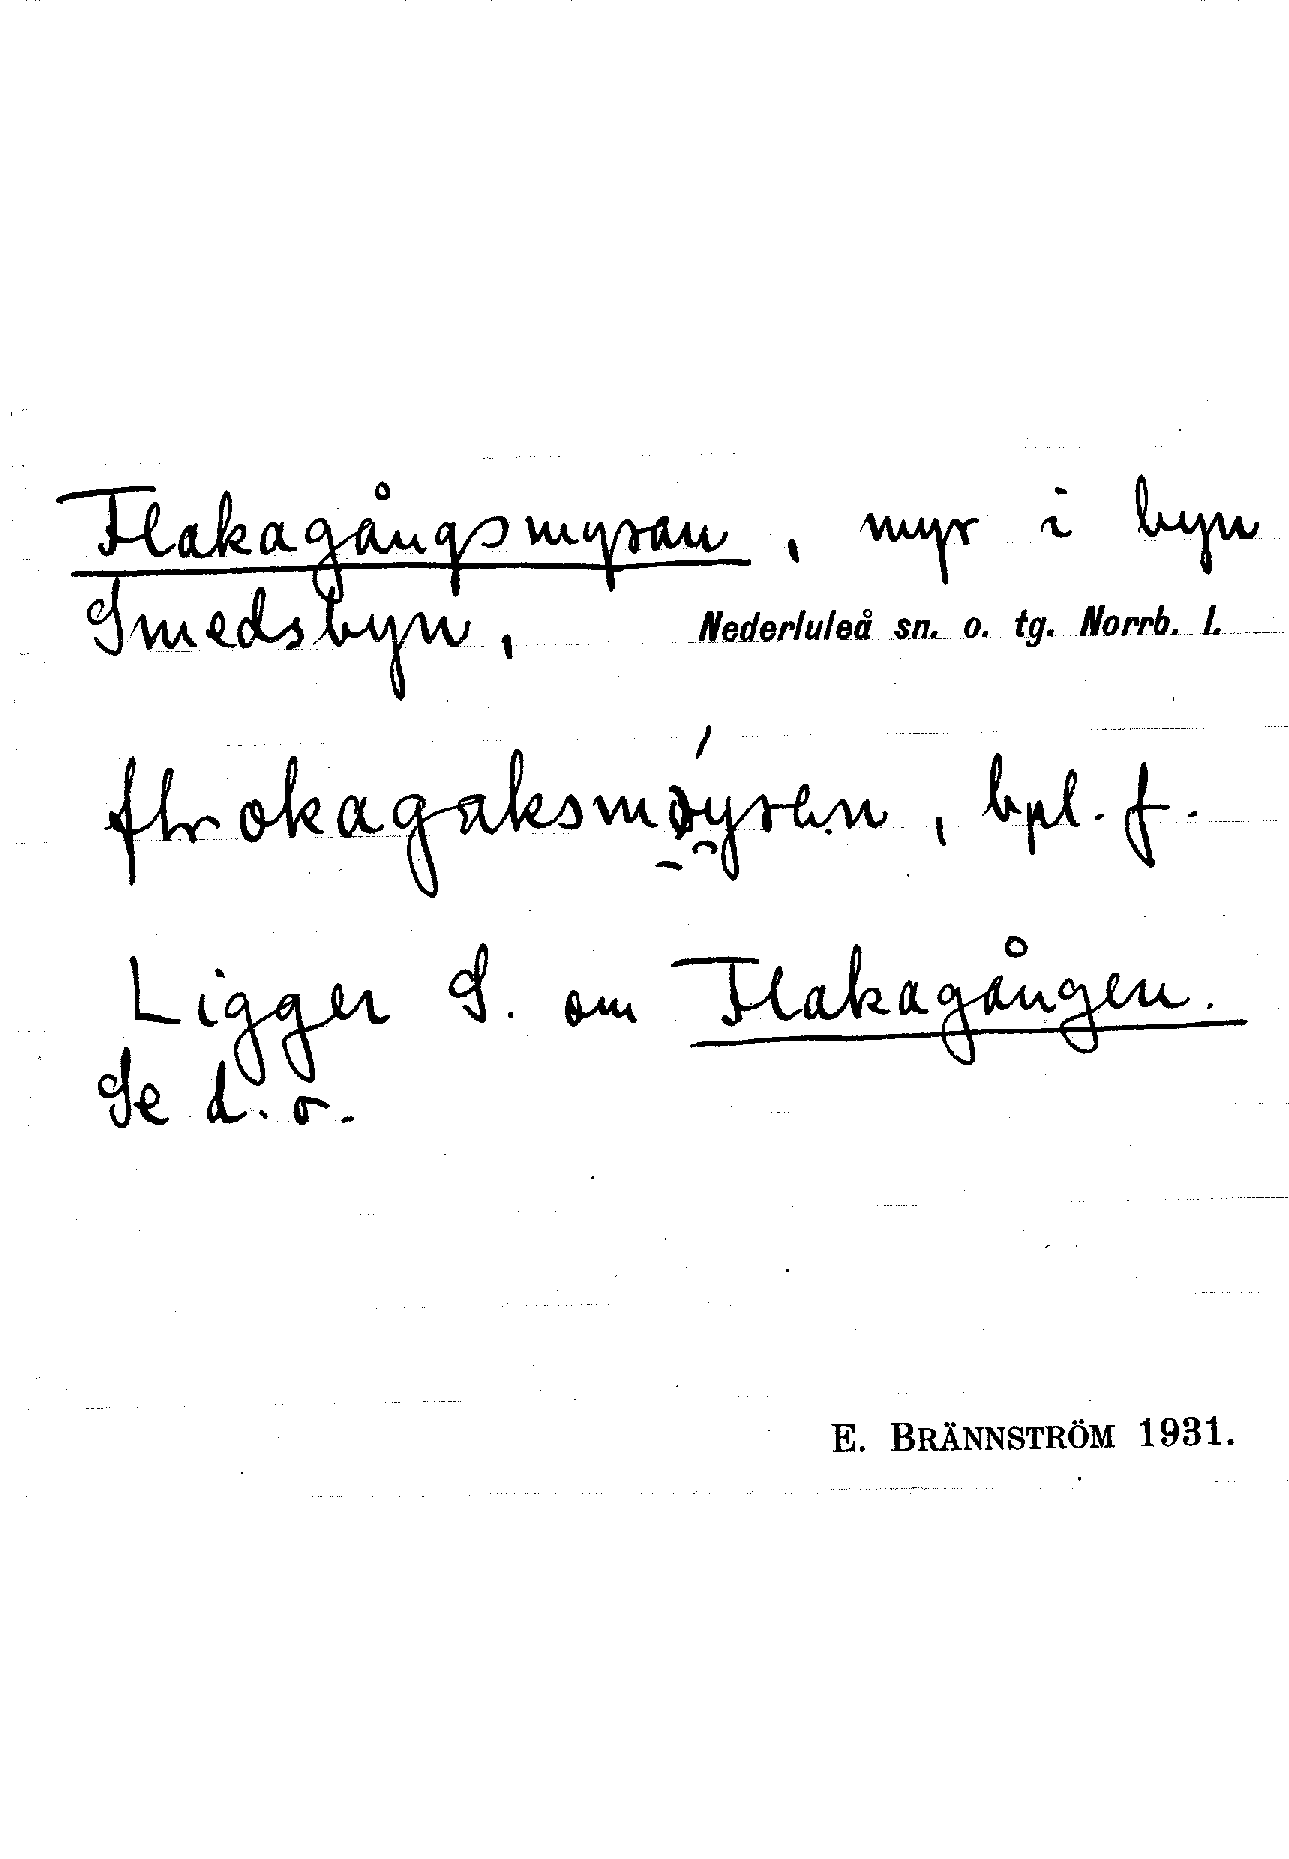 Flakagångsmyran, myr i byn
Smedsbyn, Nederluleå sn. o. tg. Norrb. l.
bpl. f.
Ligger S. om Flakagången.
Se d. o.
E. BRÄNNSTRÖM 1931.